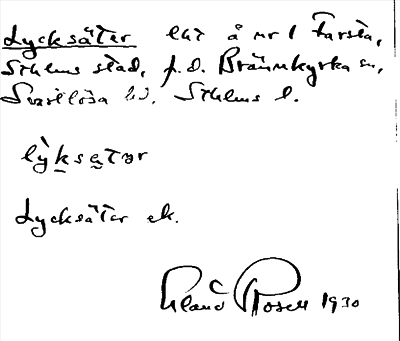 Lycksäter lht å nr 1 Farsta,
Sthlms stad, f.d. Brännkyrka sn,
Svartlösa hd, Sthlms l.
lỳksetər
Lycksäter ek.
Roset 1930